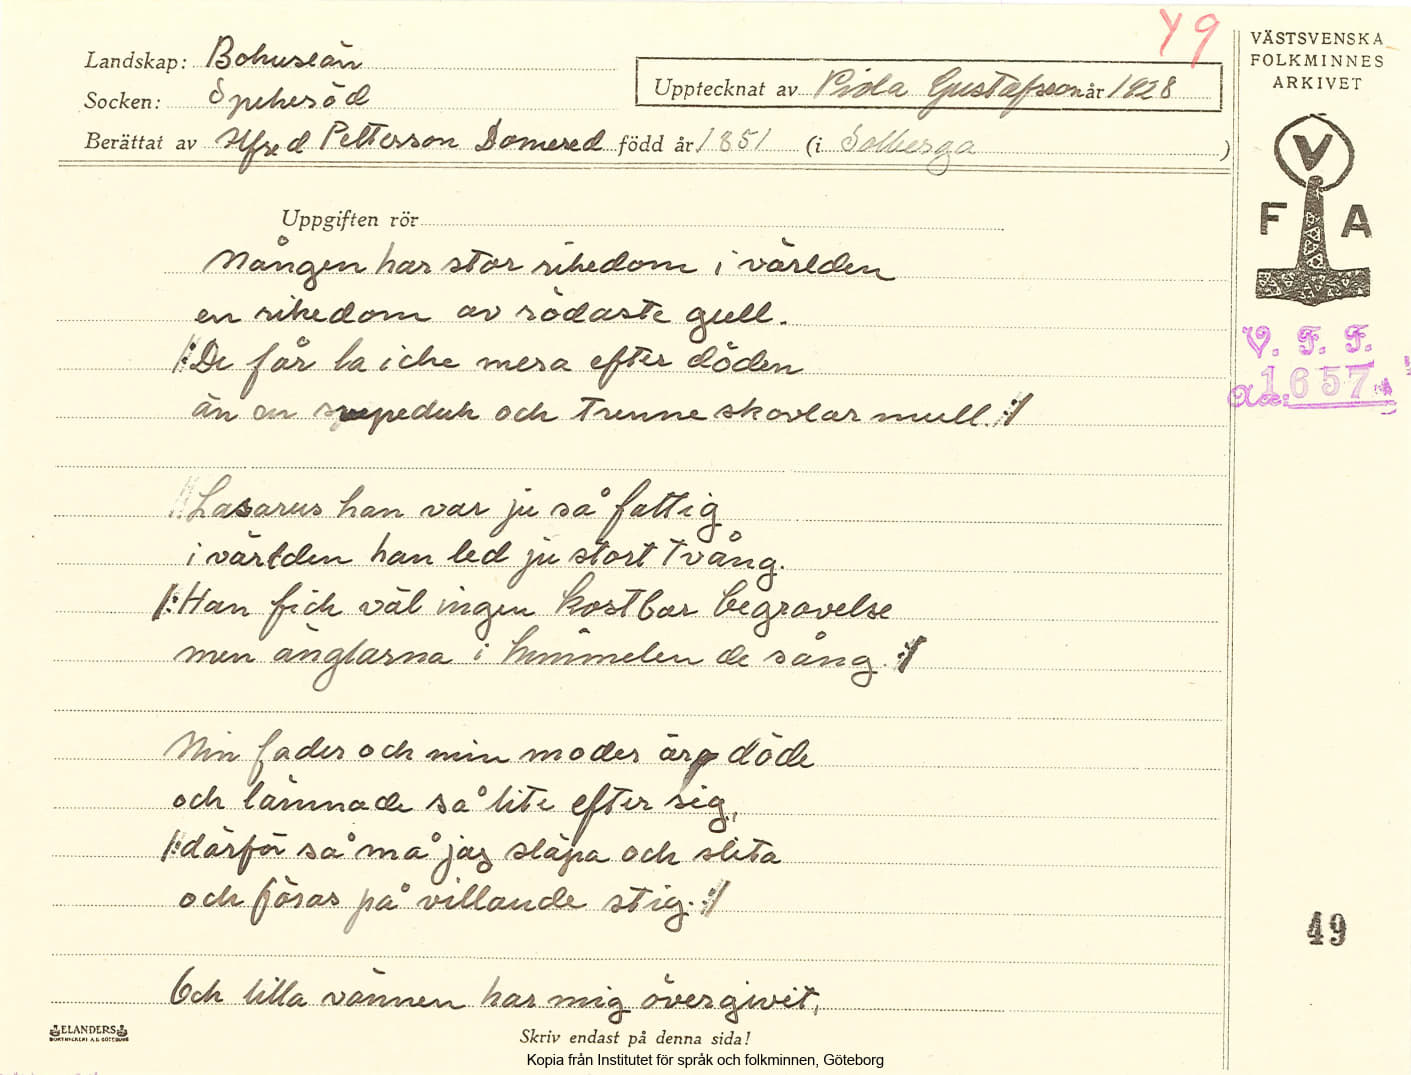 Y9
Landskap: Bohuslän
Socken: Spekeröd
Upptecknat av Viola Gustafsson år 1928
Berättat av Alfred Petterson Domered född år 1851 (i Solberga)
VÄSTSVENSKA
FOLKMINNES
ARKIVET
V
F A
Uppgiften rör
Mången har stor rikedom i världen
en rikedom av rödaste gull.
/:De får ta icke mera efter döden
än en svepeduk och trenne skovlar mull.:/
V. F. F.
1657
Lasarus han var ju så fattig
i världen han led ju stort tvång.
/:Han fick väl ingen kostbar begravelse
men änglarna i himmelen de sång.:/
Min fader och min moder är döde
och lämnade så lite efter sig,
/:därför så må jag släpa och slita
och föras på villande stig.:/
49
Och lilla vännen har mig övergivit,
ELANDERS
BOKTRYCKERI A.B. GÖTEBORG
Skriv endast på denna sida!
Kopia från Institutet för språk och folkminnen, Göteborg